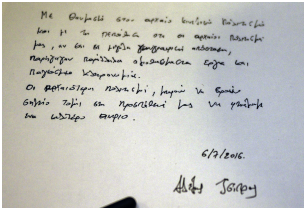 Με θαυμασμό στον αρχαίο κινεζικό πολιτισμό
και με τη πεποίθηση ότι οι αρχαίοι πολιτισμοί
μας, αν και σε μεγάλη γεωγραφική απόσταση,
παρήγαγαν παράλληλα αριστουργήματα και
παγκόσμια κληρονομιά.
Οι αρχαιότεροι πολιτισμοί, μπορούν να βρουν
σημείο τομής στη προσπάθειά μας να χτίσουμε
ένα καλύτερο αύριο.
5/7/2016.
Αλέξης Τσίπρας